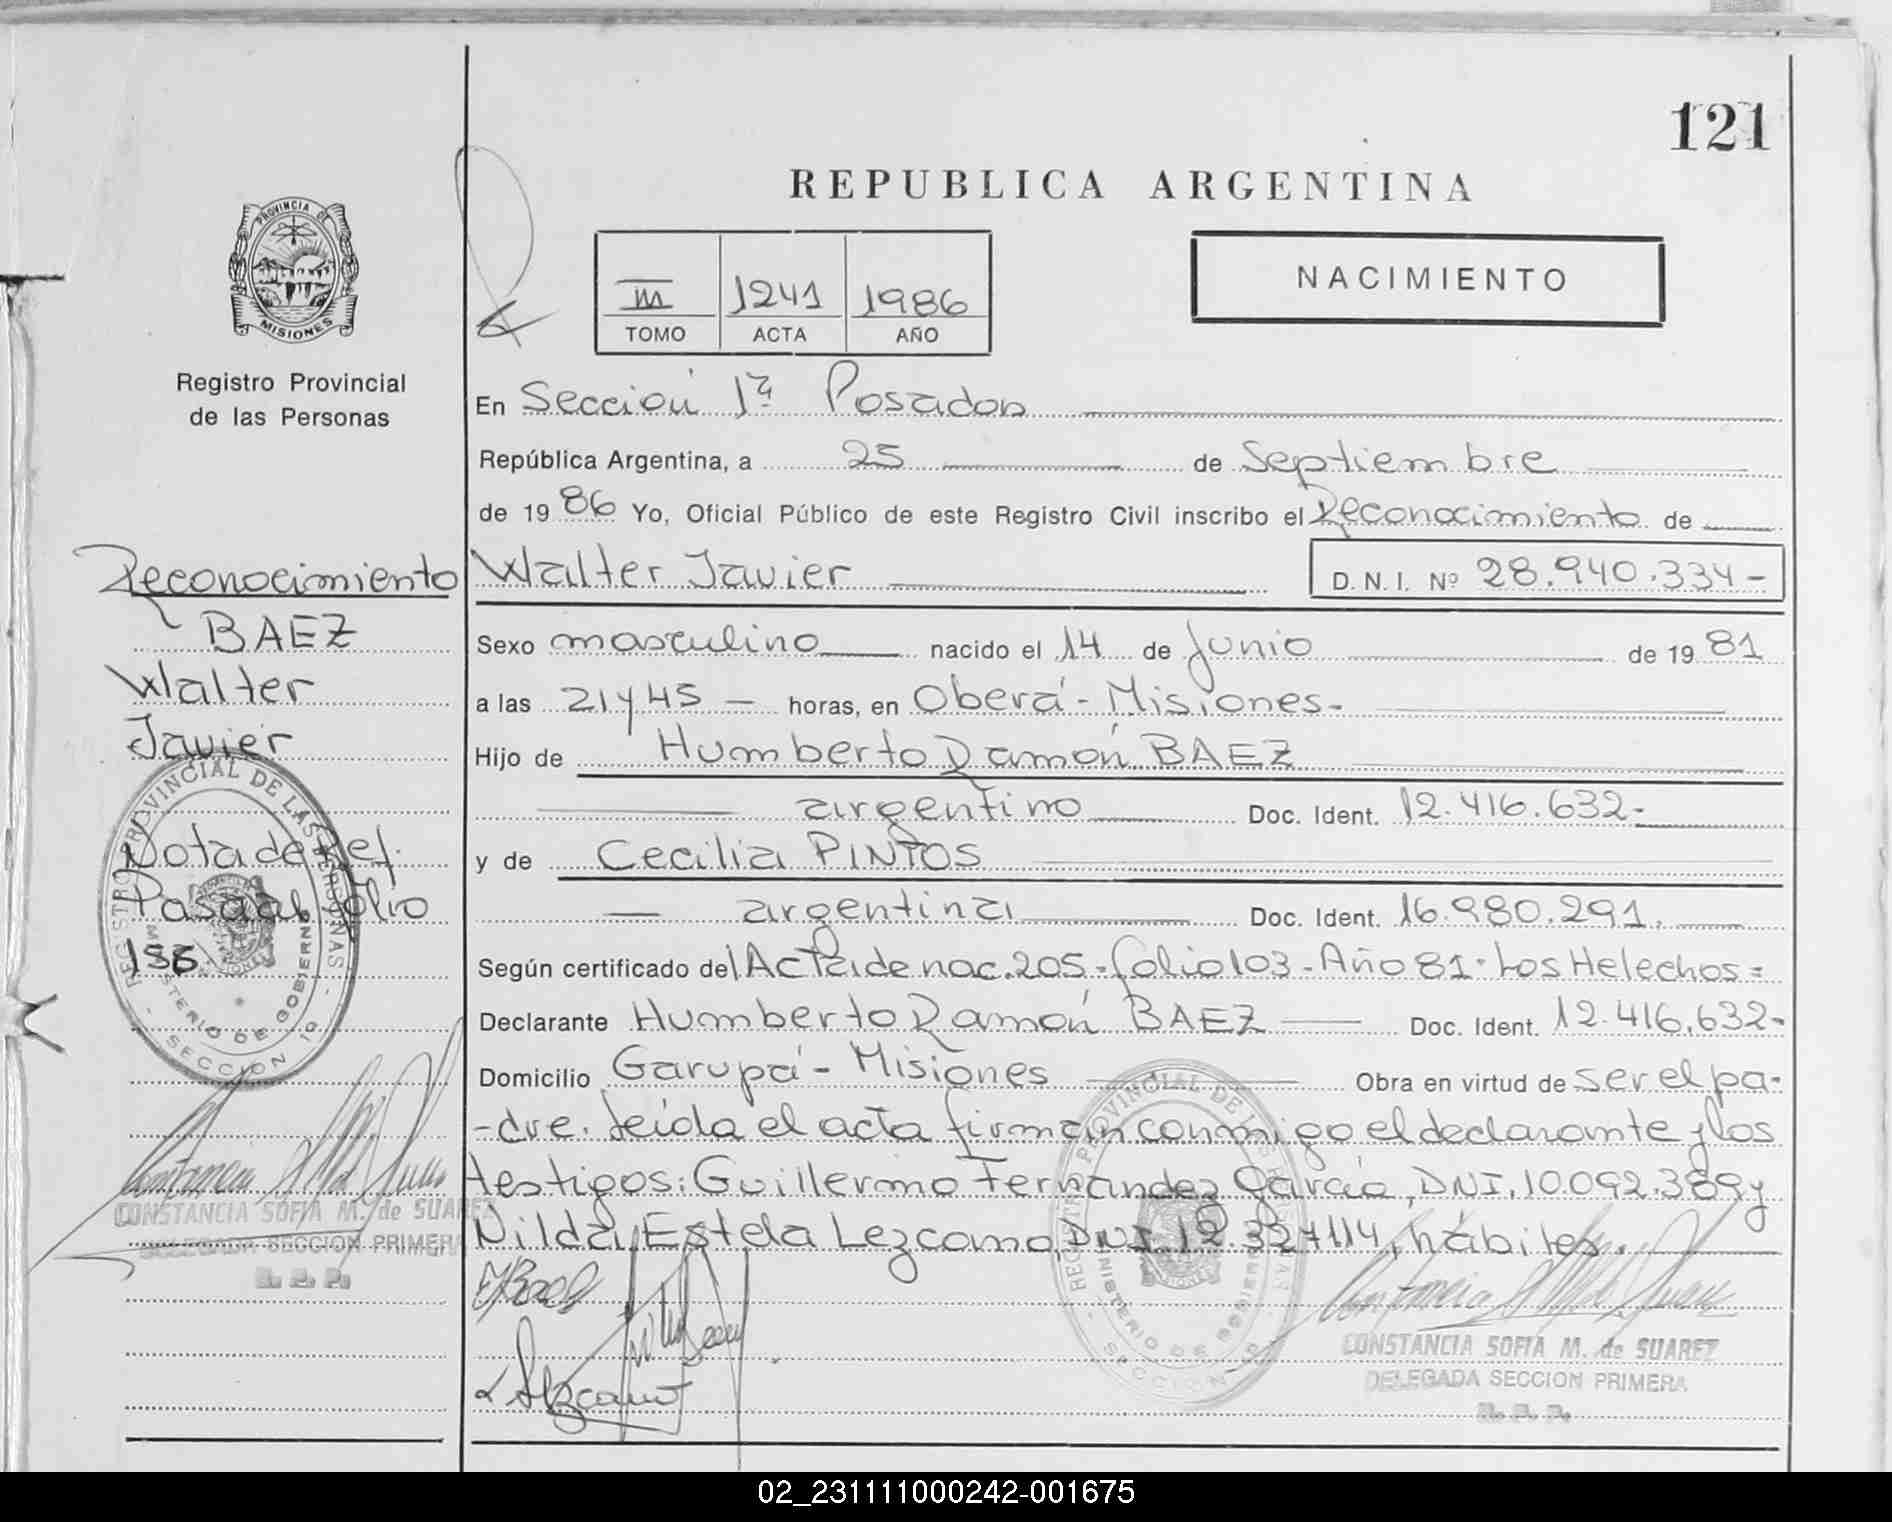 121
REPUBLICA ARGENTINA
PROVINCIA DE
MISIONES
Registro Provincial
de las Personas
III 1241 1986
TOMO ACTA AÑO
NACIMIENTO
En Sección 1ª Posadas
República Argentina, a 25 de Septiembre
de 1986 Yo, Oficial Público de este Registro Civil inscribo el Reconocimiento de
Walter Javier D.N.I. Nº 28.940.334-
Sexo masculino nacido el 14 de Junio de 1981
a las 21 y 45 — horas, en Oberá - Misiones-
Hijo de Humberto Ramón BAEZ
argentino Doc. Ident. 12.416.632-
y de Cecilia PINTOS
argentina Doc. Ident. 16.980.291.
Según certificado del Acta de nac. 205 - folio 103 - Año 81 - Los Helechos =
Declarante Humberto Ramón BAEZ Doc. Ident. 12.416.632-
Domicilio Garupá - Misiones Obra en virtud de ser el pa-
-dre. Leída el acta firman conmigo el declarante y los
testigos: Guillermo Fernández García, DNI. 10.092.389 y
Nilda Estela Lezcano, DNI. 12.327114, hábiles.
CONSTANCIA SOFIA M. de SUAREZ
DELEGADA SECCION PRIMERA
R. P. P.
Reconocimiento
BAEZ
Walter
Javier
Nota de Ref.
Pasa al folio
REGISTRO PROVINCIAL DE LAS PERSONAS
MINISTERIO DE GOBIERNO
SECCION 1ª
CONSTANCIA SOFIA M. de SUAREZ
DELEGADA SECCION PRIMERA
R. P. P.
02_231111000242-001675